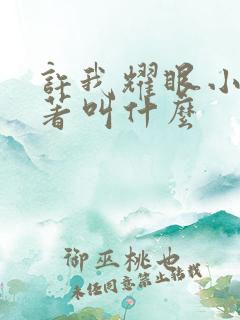 許我耀眼小
著叫什麼
御巫桃也
未經同意禁止轉載